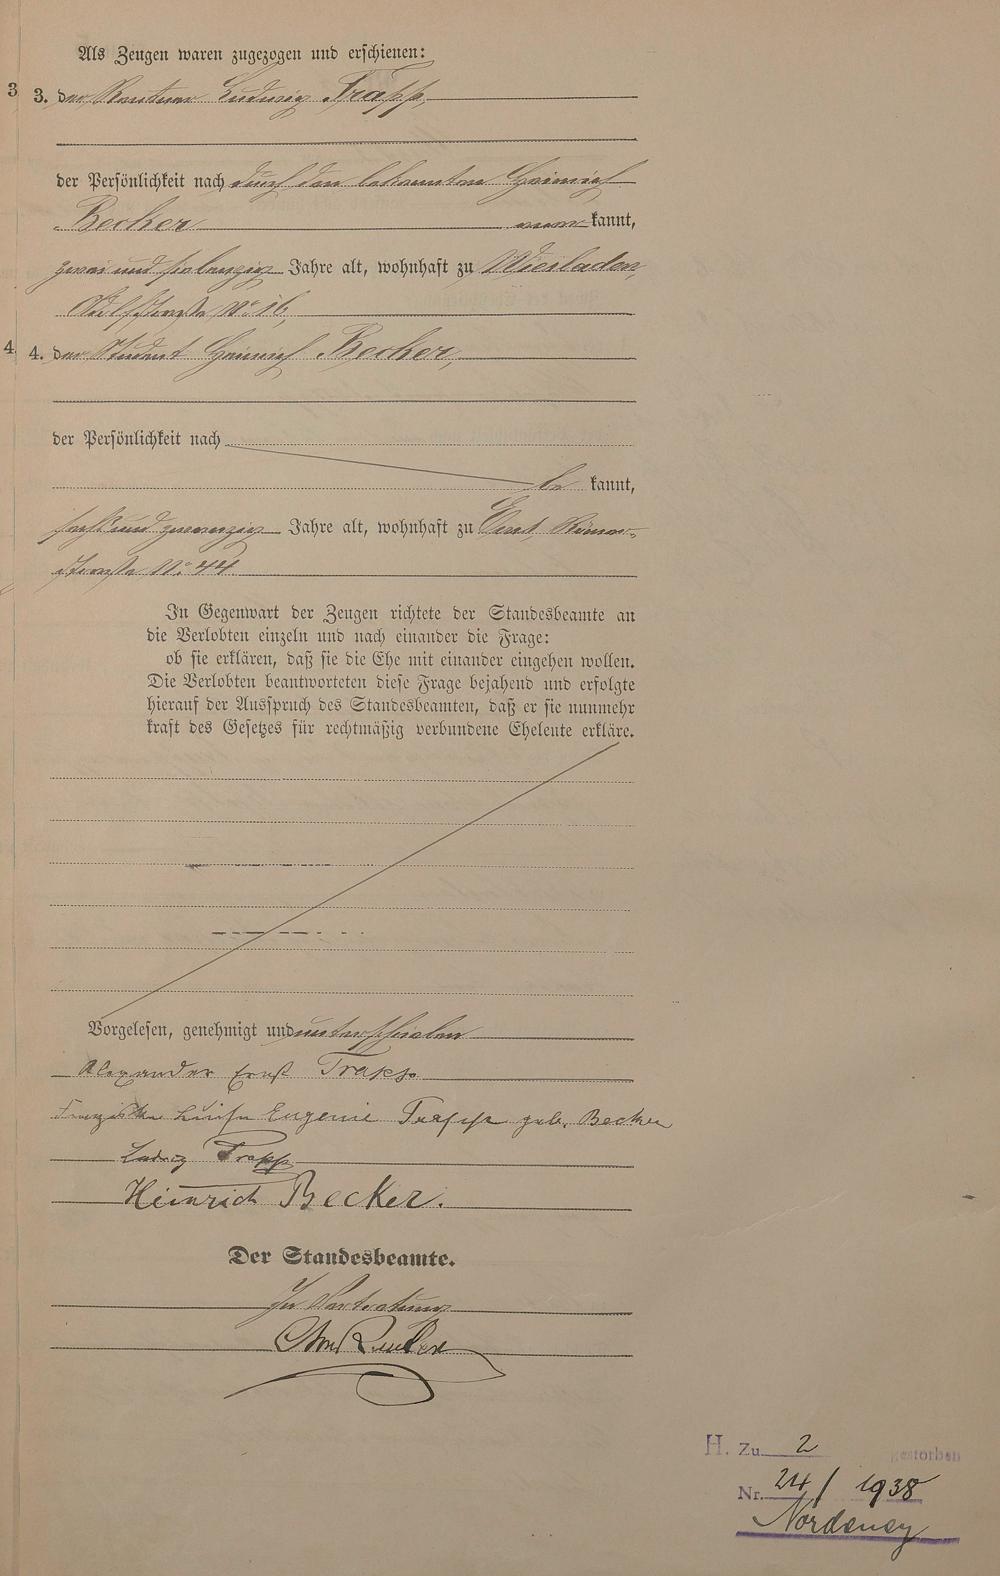 Als Zeugen waren zugezogen und erschienen:
3 3. der Rentner Ludwig Trapp,
der Persönlichkeit nach durch den bekannten Heinrich
Becker kannt,
zwei und siebenzig Jahre alt, wohnhaft zu Wiesbaden,
No. 16,
4 4. der Student Heinrich Becker,
der Persönlichkeit nach
be kannt,
sechs und zwanzig Jahre alt, wohnhaft zu
straße No. 44
In Gegenwart der Zeugen richtete der Standesbeamte an
die Verlobten einzeln und nach einander die Frage:
ob sie erklären, daß sie die Ehe mit einander eingehen wollen.
Die Verlobten beantworteten diese Frage bejahend und erfolgte
hierauf der Ausspruch des Standesbeamten, daß er sie nunmehr
kraft des Gesetzes für rechtmäßig verbundene Eheleute erkläre.
Vorgelesen, genehmigt und unterschrieben
Alexander Ernst Trapp
Franziska Luise Eugenie Trapp geb. Becker
Ludwig Trapp
Heinrich Becker.
Der Standesbeamte.
In Vertretung
H. Zu 2 gestorben
Nr. 24/1938
Norderney